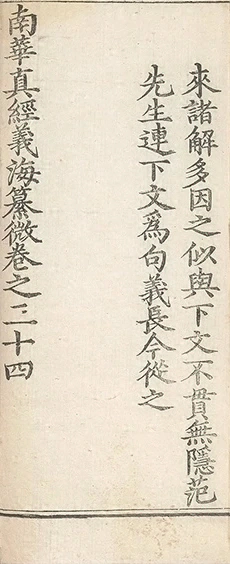 來諸解多因之似與下文不貫無隱范
先生連下文為句義長今從之
南華真經義海纂微卷之二十四